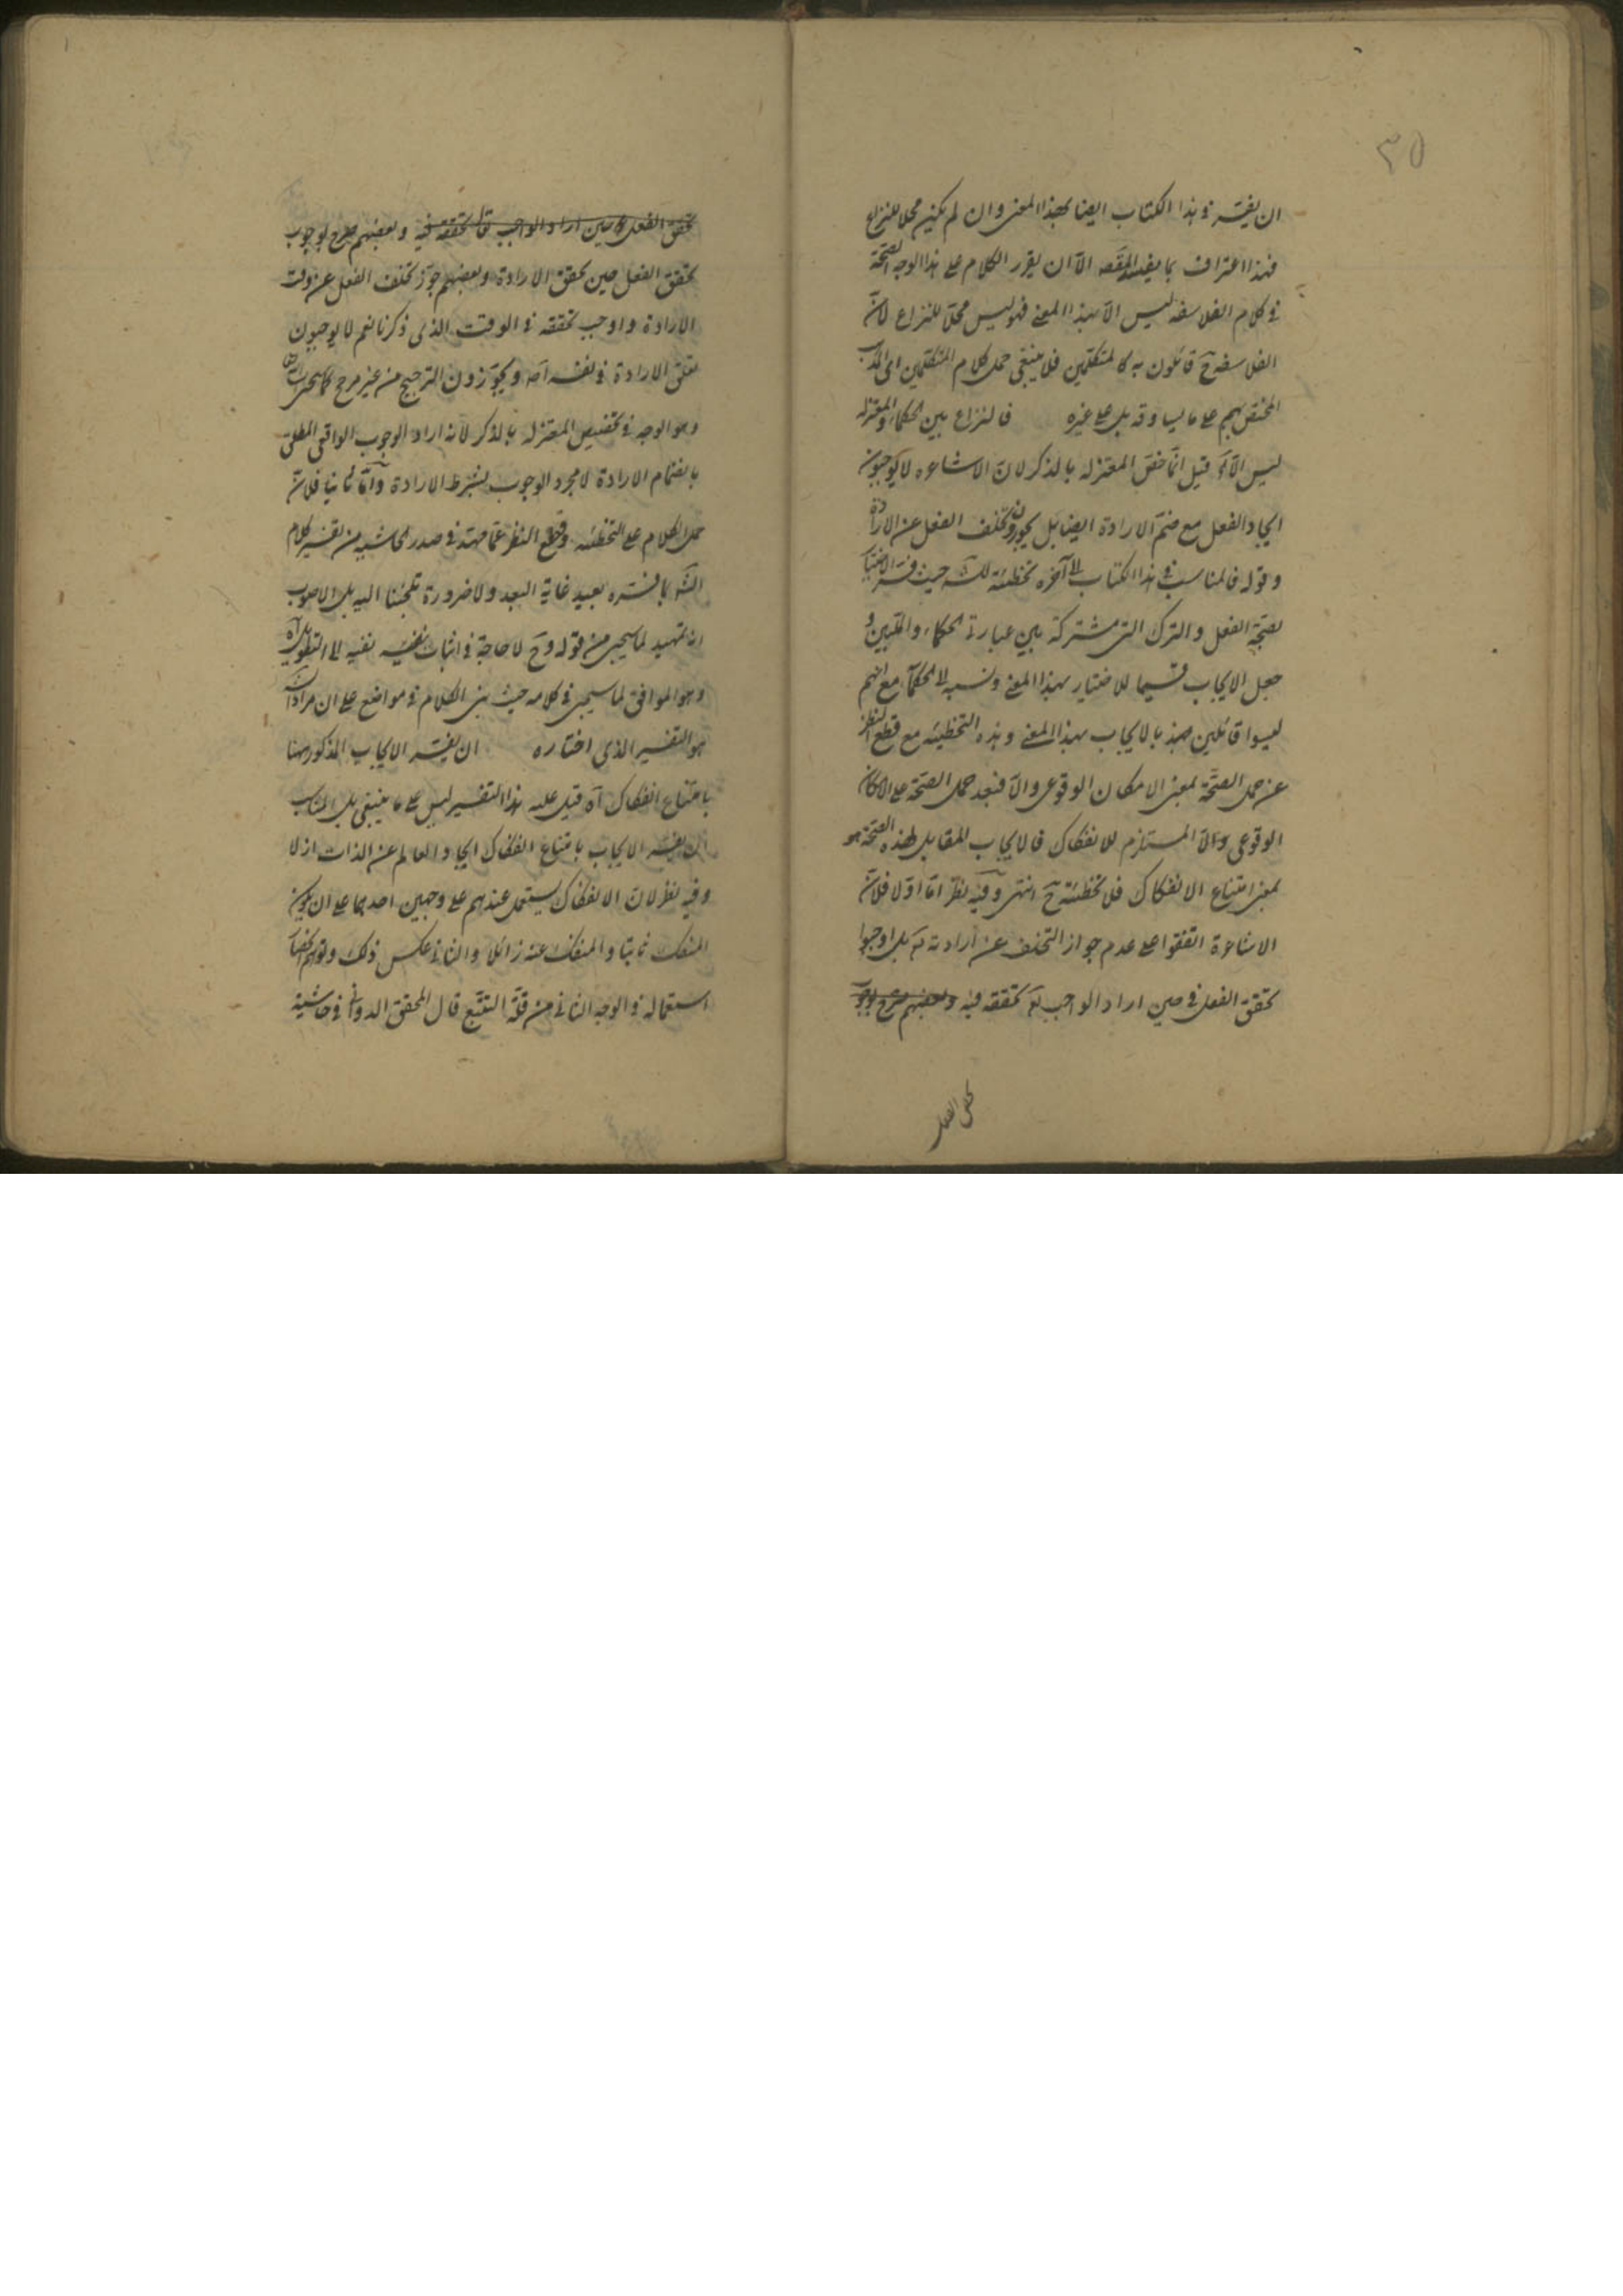 ٣٥
ان يفسّر فى هذا الكتاب ايضا بهذا المعنى وان لم يكن محلا للنزاع
فهذا اعتراف بما يفيد المقصد الّا ان يقرر الكلام على هذا الوجه الصحّة
فى كلام الفلاسفه ليس الّا بهذا المعنى فهو ليس محلّا للنزاع لانّ
الفلاسفة ح قائلون به كالمتكلمين فلا ينبغى حمل كلام المتكلمين
المختص بهم على ما يساوقه بل على غيره فالنزاع بين الحكماء والمعتزله
ليس الّا قيل انّما خصّ المعتزله بالذكر لانّ الاشاعره لا يوجبون
ايجاد الفعل مع ضمّ الارادة ايضا بل يجوزون تخلف الفعل عن الارادة
وقوله فالمناسب فى هذا الكتاب الى آخره تخطئة للش حيث فسّر الاختيار
بصحّة الفعل والترك التى مشتركة بين عبارة الحكماء والمليين و
جعل الايجاب قسيما للاختيار بهذا المعنى ونسبه الى الحكمآء مع انهم
ليسوا قائلين بالايجاب بهذا المعنى وهذه التخطيئه مع قطع النظر
عن حمل الصحّة بمعنى الامكان الوقوعى والّا فبعد حمل الصحّة على الامكان
الوقوعى المستلزم للانفكاك فالايجاب المقابل لهذه الصحّة هو
بمعنى امتناع الانفكاك فلا تخطئة ح انتهى وفيه نظر امّا اوّلا فلانّ
الاشاعرة اتفقوا على عدم جواز التخلف عن ارادته تع بل اوجبوا
تحقق الفعل فى حين اراد الواجب تع تحققه فيه وبعضهم صرح بوجوب
تحقق الفعل
تحقق الفعل فى حين اراد الواجب تع تحققه فيه وبعضهم صرح بوجوب
تحقق الفعل حين تحقق الارادة وبعضهم جوّز تخلف الفعل عن وقت
الارادة واوجب تحققه فى الوقت الذى ذكرنا نعم لا يوجبون
تعلق الارادة فى نفسه ويجوّزون الترجيح من غير مرجح
وهو الوجه فى تخصيص المعتزله بالذكر لانه اراد الوجوب الواقى المطلق
بانضمام الارادة لا مجرد الوجوب بشرط الارادة وامّا ثانيا فلانّ
حمل الكلام على التخطئه وقطع النظر عمّا مهّد فى صدر الحاشيه من تفسير كلام
الش بما فسّره بعيد غاية البعد ولا ضرورة تلجئنا اليه بل الاصوب
انه تمهيد لما سيجئ من قوله وح لا حاجة فى اثبات نفيه الى التطويل اه
وهو الموافق لما سيجئ فى كلامه حيث بنى الكلام فى مواضع على ان مراد الش
هو التفسير الذى اختاره ان يفسّر الايجاب المذكور هنا
بامتناع انفكاك اه قيل عليه هذا التفسير ليس على ما ينبغى بل المناسب
ان يفسّر الايجاب بامتناع انفكاك ايجاد العالم عن الذات ازلا
وفيه نظر لانّ الانفكاك يستعمل عندهم على وجهين احدهما على ان يكون
المنفك ثابتا والمنفك عنه زائلا والثانى عكس ذلك وتوهّم اختصاص
استعماله فى الوجه الثانى من قلّة التتبّع قال المحقق الدوانى فى حاشية